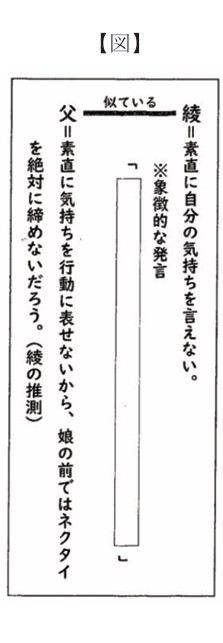 【図】
綾＝素直に自分の気持ちを言えない。
似ている
※象徴的な発言
「　　　」
父＝素直に気持ちを行動に表せないから、娘の前ではネクタイ
を絶対に締めないだろう。（綾の推測）